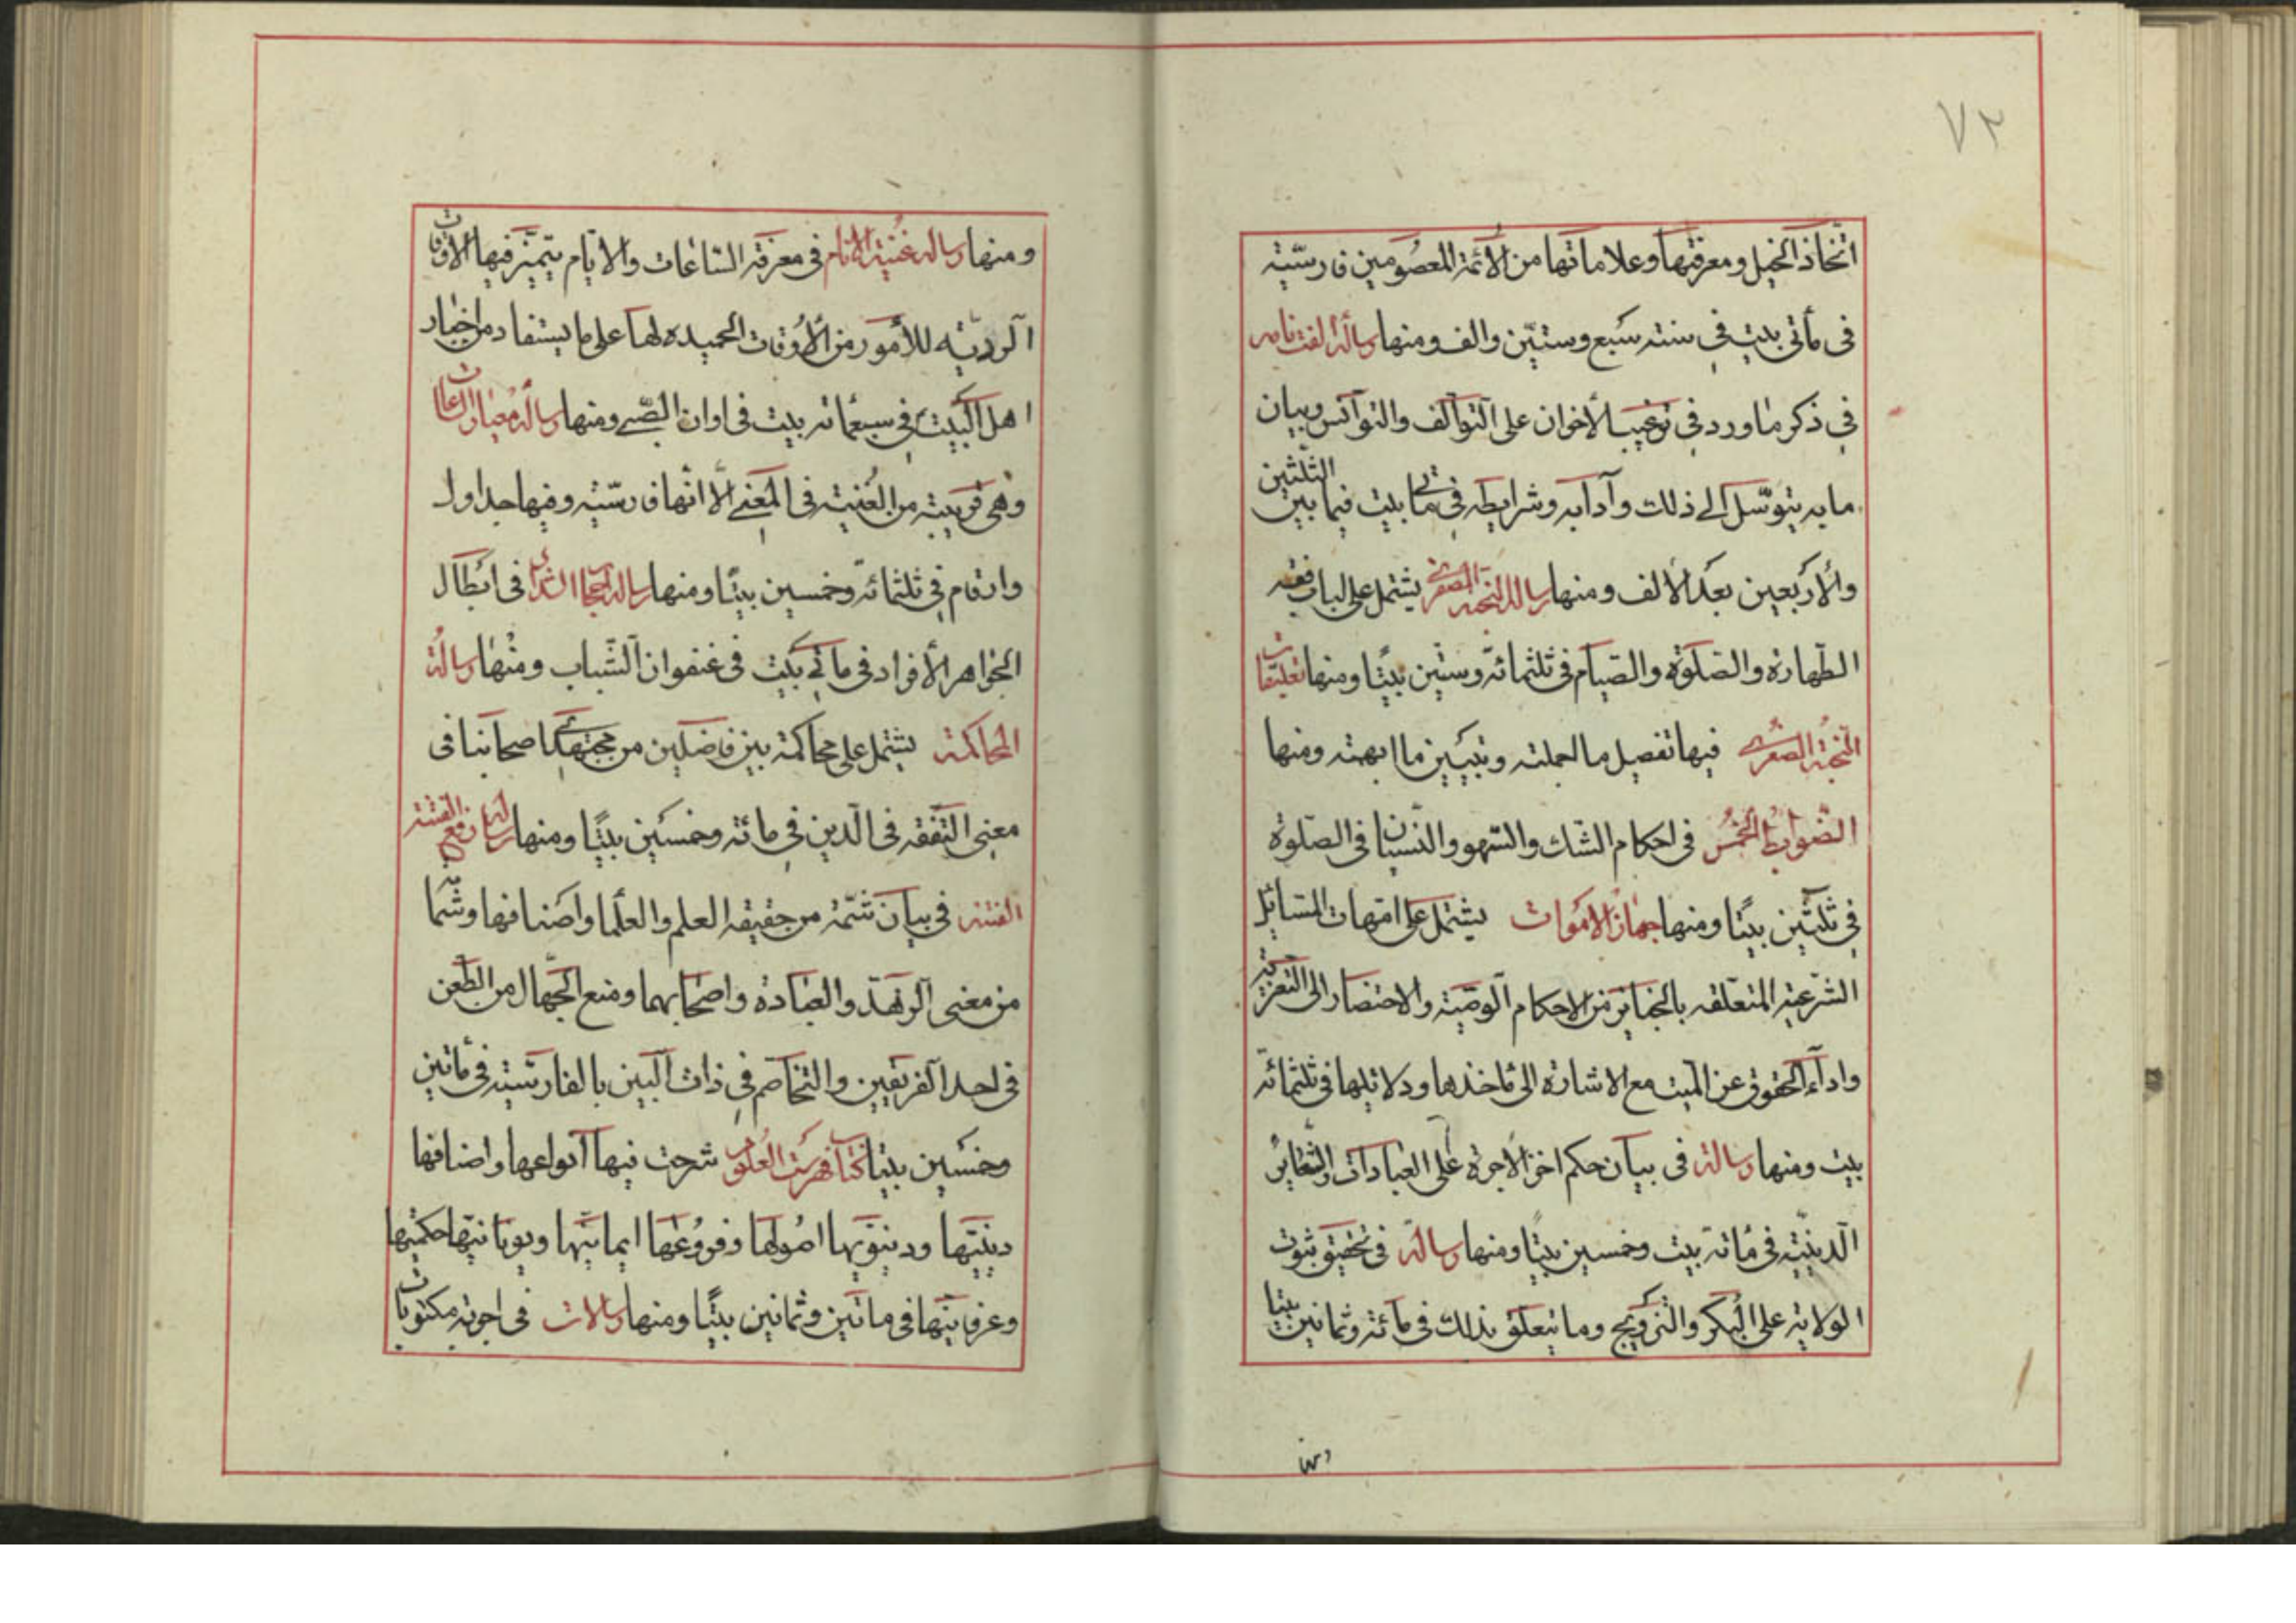 ٧٢
اتّخاذ الخيل ومعرفتها وعلاماتها من الأئمة المعصومين فارسيّة
في مأتي بيت في سنة سبع وستّين والف ومنها رسالة الفت نامه
في ذكر ما ورد في ترغيب الأخوان على التوآلف والتوآنس وبيان
ما به يتوسّل الى ذلك وآدابه وشرايطه في مأتي بيت فيما بين الثلثين
والأربعين بعد الألف ومنها رسالة النخبة الصغرى يشتمل على لباب فقه
الطهارة والصلوة والصيام في ثلثمائة وستين بيتًا ومنها تعليقات
النخبة الصغرى فيها تفصيل ما اجملته وتبيين ما ابهمته ومنها
الضوابط الخمس في احكام الشك والسّهو والنسيان في الصلوة
في ثلثين بيتًا ومنها جهاز الاموات يشتمل على امّهات المسائل
الشرعية المتعلقه بالجنايز من الاحكام الوصية والاحتضار الى التعزية
وادآء الحقوق عن الميت مع الاشارة الى مأخذها ودلائلها في ثلثمائة
بيت ومنها رسالة في بيان حكم اخذ الأجرة على العبادات والشعاير
الدينيّة في مائة بيت وخمسين بيتًا ومنها رسالة في تحقيق ثبوت
الولاية على البكر والتزويج وما يتعلق بذلك في مائة وثمانين بيتا
ومنها رساله غنية الانام في معرفة الساعات والايّام يتميّز فيها الاوقات
الرديّه للأمور من الأوقات الحميده لها على ما يستفاد من اخبار
اهل البيت في سبعمائة بيت في اوان الصّبى ومنها رسالة معيار الساعات
وهي قريبة من الغنية في المعنى الّا انها فارسيّة وفيها جداول
وارقام في ثلثمائة وخمسين بيتًا ومنها رساله احجار الشداد في ابطال
الجواهر الأفراد في مأتي بيت في عنفوان الشباب ومنها رسالة
المحاكمة يشتمل على محاكمة بين فاضلين من مجتهدي اصحابنا في
معنى التفقه في الدين في مائة وخمسين بيتًا ومنها رسالة رفع الفتنة
الفتنه في بيان شمّة من حقيقه العلم والعلما واصنافها وشمّا
من معنى الزهد والعبادة واصحابهما ومنع الجهال من الطعن
في احد الفريقين والتخاصم في ذات البين بالفارسيّة في مأتين
وخمسين بيتا كتاب فهرست العلوم شرحت فيها انواعها واصنافها
دينيّها ودينويّها اصولها وفروعها ايمانيّها ويونانيّها حكمتها
وعرفانيّها في ماتين وثمانين بيتًا ومنها رسالات في اجوبة مكتوبات